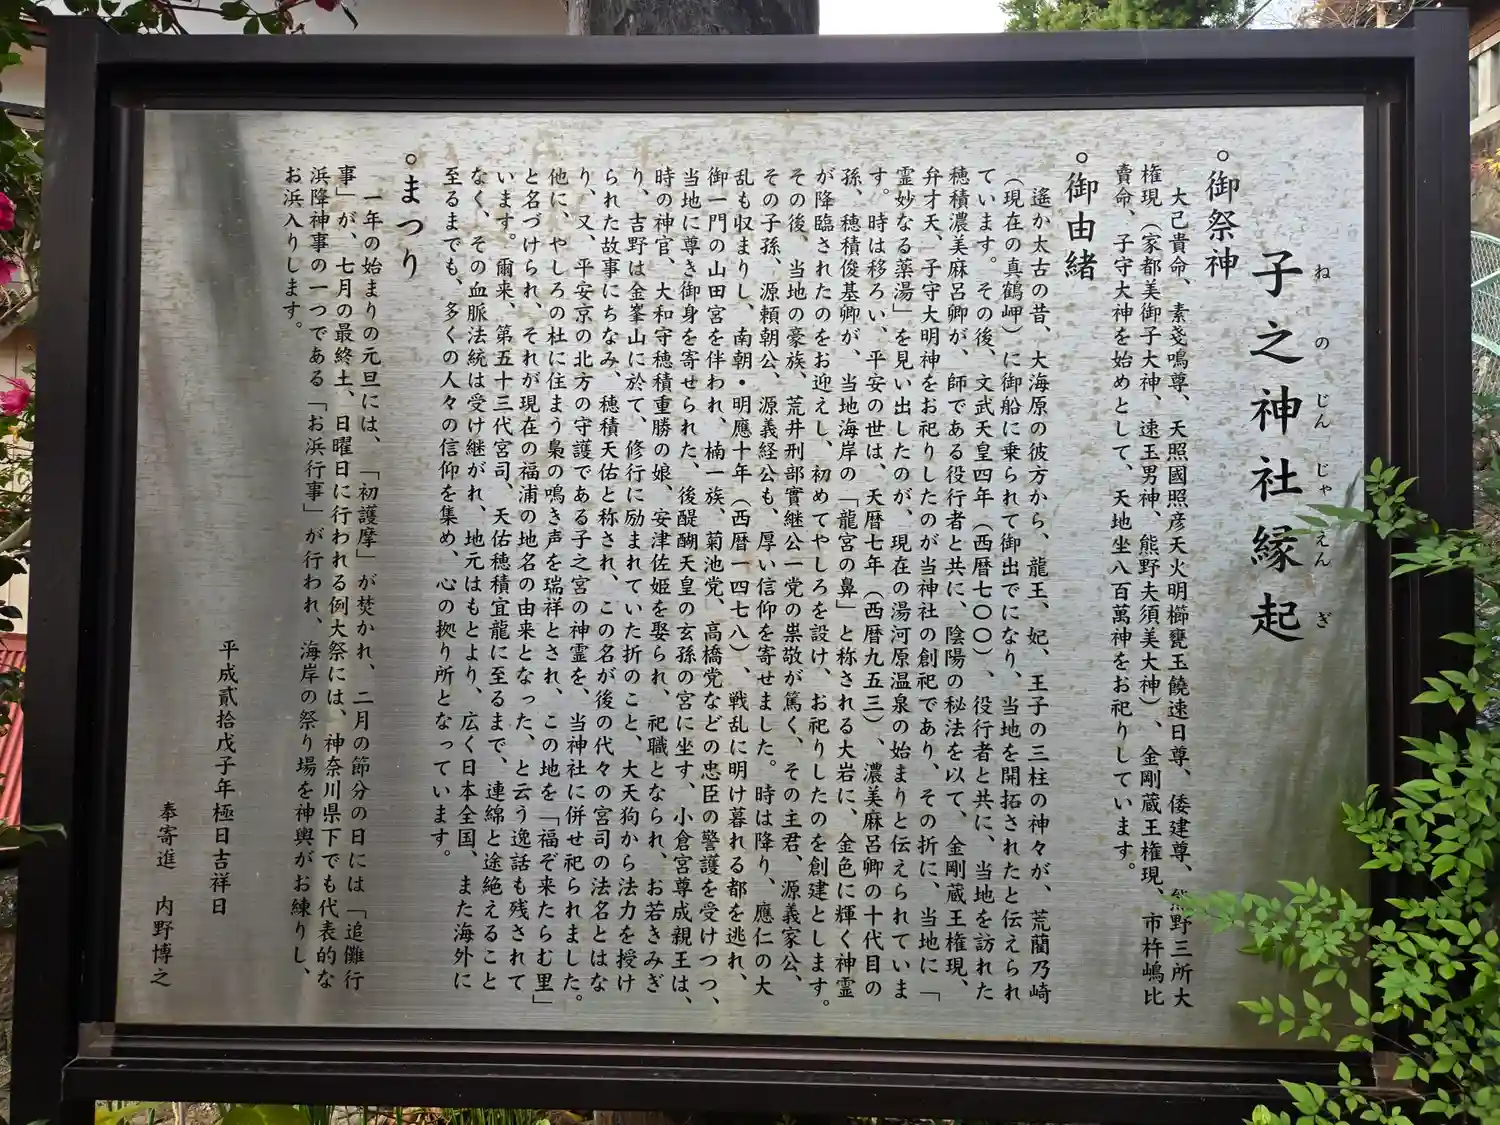 子之神社縁起
ねのじんじゃえんぎ
。御祭神
大己貴命、素戔鳴尊、天照國照彦天火明櫛甕玉饒速日尊、倭建尊、熊野三所大
権現（家都美御子大神、速玉男神、熊野夫須美大神）、金剛蔵王権現、市杵嶋比
賣命、子守大神を始めとして、天地坐八百萬神をお祀りしています。
。御由緒
遙か太古の昔、大海原の彼方から、龍王、妃、王子の三柱の神々が、荒藺乃崎
（現在の真鶴岬）に御船に乗られて御出でになり、当地を開拓されたと伝えられ
ています。その後、文武天皇四年（西暦七〇〇）、役行者と共に、当地を訪れた
穂積濃美麻呂卿が、師である役行者と共に、陰陽の秘法を以て、金剛蔵王権現、
弁才天、子守大明神をお祀りしたのが当神社の創祀であり、その折に、当地に「
霊妙なる薬湯」を見い出したのが、現在の湯河原温泉の始まりと伝えられていま
す。時は移ろい、平安の世は、天暦七年（西暦九五三）、濃美麻呂卿の十代目の
孫、穂積俊基卿が、当地海岸の「龍宮の鼻」と称される大岩に、金色に輝く神霊
が降臨されたのをお迎えし、初めてやしろを設け、お祀りしたのを創建とします。
その後、当地の豪族、荒井刑部實継公一党の崇敬が篤く、その主君、源義家公、
その子孫、源頼朝公、源義経公も、厚い信仰を寄せました。時は降り、應仁の大
乱も収まりし、南朝・明應十年（西暦一四七八）、戦乱に明け暮れる都を逃れ、
御一門の山田宮を伴われ、楠一族、菊池党、高橋党などの忠臣の警護を受けつつ、
当地に尊き御身を寄せられた、後醍醐天皇の玄孫の宮に坐す、小倉宮尊成親王は、
時の神官、大和守穂積重勝の娘、安津佐姫を娶られ、祀職となられ、お若きみぎ
り、吉野は金峯山に於て、修行に励まれていた折のこと、大天狗から法力を授け
られた故事にちなみ、穂積天佑と称され、この名が後の代々の宮司の法名とはな
り、又、平安京の北方の守護である子之宮の神霊を、当神社に併せ祀られました。
他に、やしろの杜に住まう梟の鳴き声を瑞祥とされ、この地を「福ぞ来たらむ里」
と名づけられ、それが現在の福浦の地名の由来となった、と云う逸話も残されて
います。爾来、第五十三代宮司、天佑穂積宜龍に至るまで、連綿と途絶えること
なく、その血脈法統は受け継がれ、地元はもとより、広く日本全国、また海外に
至るまでも、多くの人々の信仰を集め、心の拠り所となっています。
。まつり
一年の始まりの元旦には、「初護摩」が焚かれ、二月の節分の日には「追儺行
事」が、七月の最終土、日曜日に行われる例大祭には、神奈川県下でも代表的な
浜降神事の一つである「お浜行事」が行われ、海岸の祭り場を神輿がお練りし、
お浜入りします。
平成貳拾戊子年極日吉祥日
奉寄進　内野博之